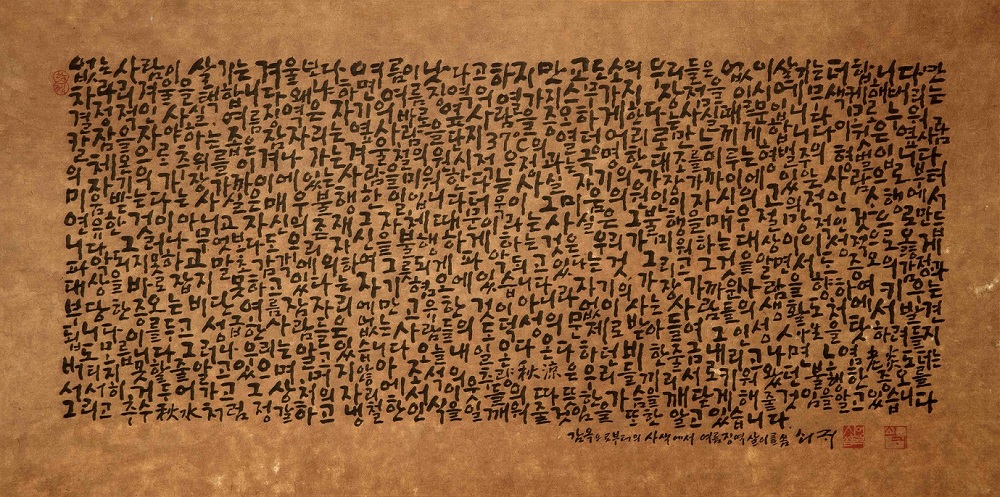 없는 사람이 살기는 겨울보다 여름이 낫다고 하지만 교도소의 우리들은 없이 살기는 더합니다만
차라리 겨울을 택합니다 왜냐하면 여름징역의 열가지 스무가지 장점을 일시에 무색케 해버리는
결정적인 사실 여름징역은 자기의 바로 옆사람을 증오하게 한다는 사실 때문입니다 모로 누워
칼잠을 자야하는 좁은 잠자리는 옆사람을 단지 37℃의 열덩어리로만 느끼게 합니다 이것은 옆사람
의 체온으로 추위를 이겨나가는 겨울철의 원시적 우정과는 극명한 대조를 이루는 형벌중의 형벌입니다
자기의 가장 가까이에 있는 사람을 미워한다는 사실 자기의 가장 가까이에 있는 사람으로부터
미움받는다는 사실은 매우 불행한 일입니다 더욱이 그 미움의 원인이 자신의 고의적인 소행에서
연유한 것이 아니고 자신의 존재 그 자체 때문이라는 사실은 그 불행을 매우 절망적인 것으로 만듭
니다 그러나 무엇보다도 우리 자신을 불행하게 하는 것은 우리가 미워하는 대상이 이성적으로 옳게
파악되지 못하고 말초감각에 의하여 그릇되게 파악되고 있다는 것 그리고 그것을 알면서도 증오의 감정과
대상을 바로잡지 못하고 있다는 자기혐오에 있습니다 자기의 가장 가까운 사람을 향하여 키우는
부당한 증오는 비단 여름 잠자리에만 고유한 것이 아니라 없이 사는 사람들의 생활 도처에서 발견
됩니다 이를 두고 성급한 사람들은 없는 사람들의 도덕성의 문제로 받아들여 그 인성을 탓하려 들지
도 모릅니다 그러나 우리는 알고 있습니다 오늘 내일 온다 온다 하던 비 한줄금 내리고 나면 노염老炎도 더는
버티지 못할 줄 알고 있으며 머지않아 조석의 추량秋凉은 우리들끼리 서로 키워왔던 불행한 증오를
서서히 거두어가고 그 상처의 자리에서 이웃들의 따뜻한 가슴을 깨닫게 해줄 것임을 알고 있습니다
그리고 추수秋水처럼 정갈하고 냉철한 인식을 일깨워 줄 것임을 또한 알고 있습니다
감옥으로부터의 사색에서 여름징역살이를 씀 쇠귀